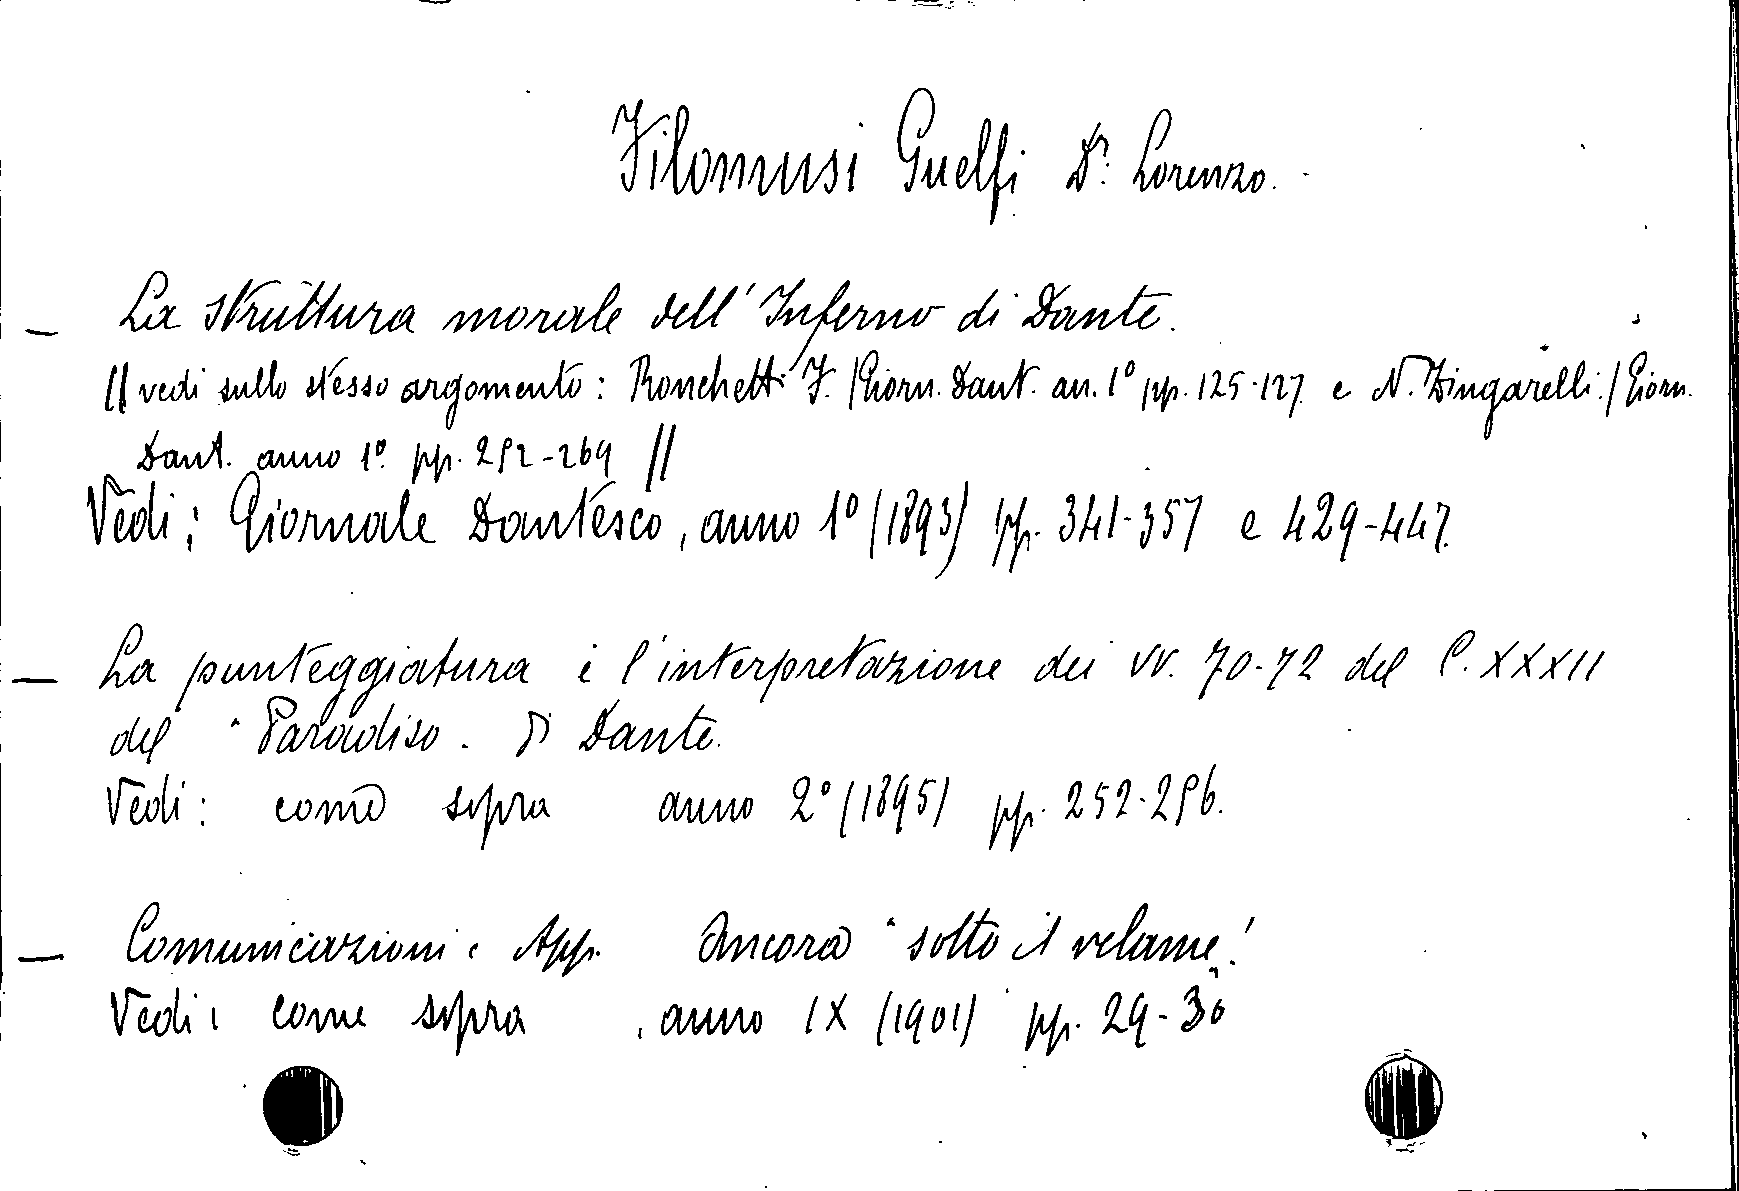 Filomusi Guelfi Dr. Lorenzo.
— La struttura morale dell'Inferno di Dante.
// vedi sullo stesso argomento: Ronchetti F. /Giorn. Dant. an. 1° pp. 125-127 e N. Zingarelli./Giorn.
Dant. anno 1° pp. 252-269 //
Vedi: Giornale Dantesco, anno 1° (1893) pp. 341-357 e 429-447.
— La punteggiatura e l'interpretazione dei vv. 70-72 del C. XXXII
del "Paradiso" di Dante.
Vedi: come sopra anno 2° (1895) pp. 252-256.
— Comunicazioni e App. Ancora "sotto il velame"!
Vedi: come sopra, anno IX (1901) pp. 29-30